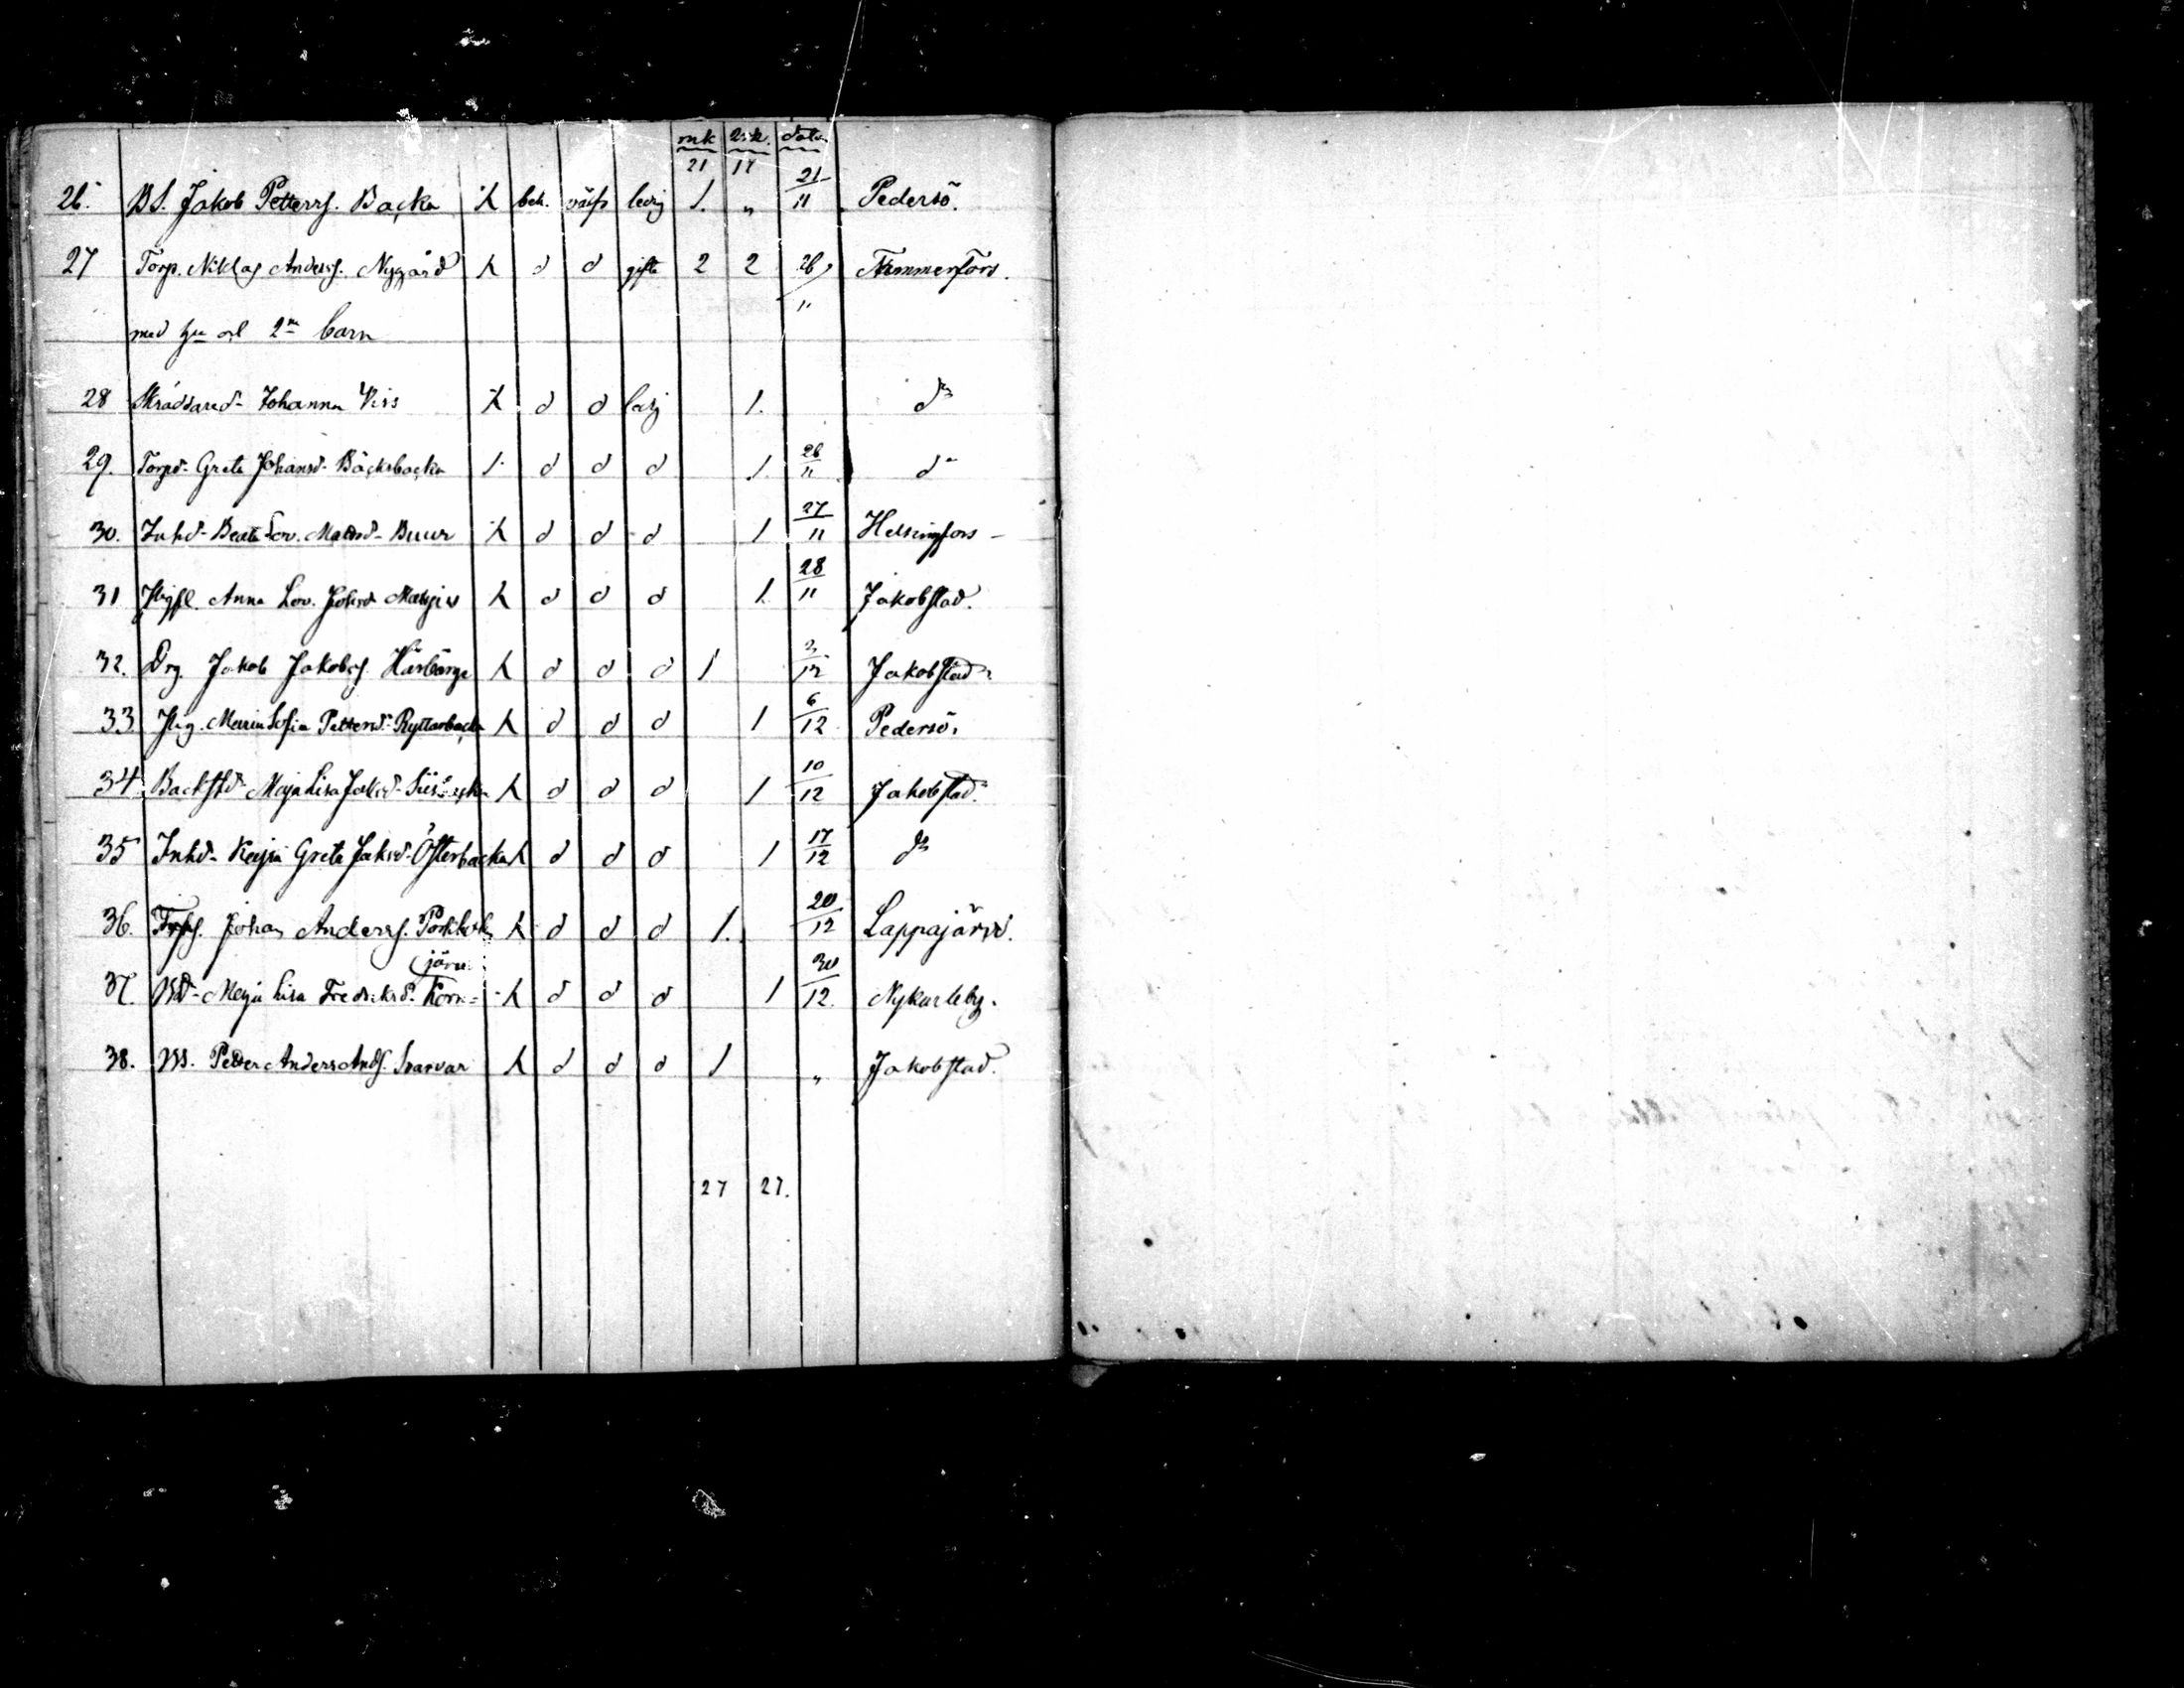 mk qvk. datum
21 17
26. BS. Jakob Petterss. Backa h bek. välfr ledig 1. „ 21/11 Pedersö.
27 Torp. Niklas Anderss. Nygård h d d gifta 2 2 26/11 Tammerfors.
med hu och 2ne barn
28 Skräddared- Johanna h d d ledig 1. do
29. Torpd- Greta Johansd- Bäcksbacka 1. d d d 1. 26/11 do
30. Inhd- Beata Lov. Matsd- Buur h d d d 1 27/11 Helsingfors -
31 Anna Lov. h d d d 1. 28/11 Jakobstad.
32. Drg. Jakob Jakobss. h d d d 1 3/12 Jakobstad
33. Maria Sofia Pettersd- Ryttarbacka h d d d 1 6/12 Pedersö.
34. Backstd- Maja Lisa h d d d 1 10/12 Jakobstad.
35 Inhd- Kajsa Greta Jakobsd- Österbacka h d d d 1 17/12 do
36. Johan Anderss. h d d d 1. 20/12 Lappajärvi.
(järvi
37. Bd- Maja Lisa Fredriksd. Kort= h d d d 1 30/12. Nykarleby.
38. BS. Petter Anders Ands. Svarvar h d d d 1 „ Jakobstad.
27 27.